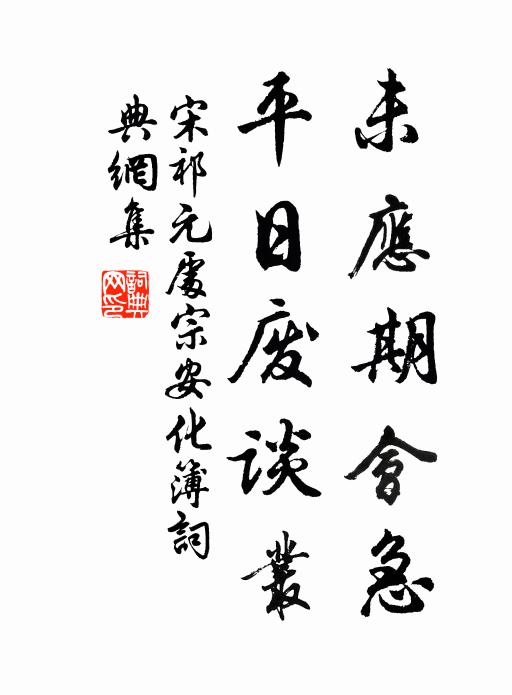 未應期會急
平日废談叢
宋祁元處宗安化簿詞
典網集
詞典網印